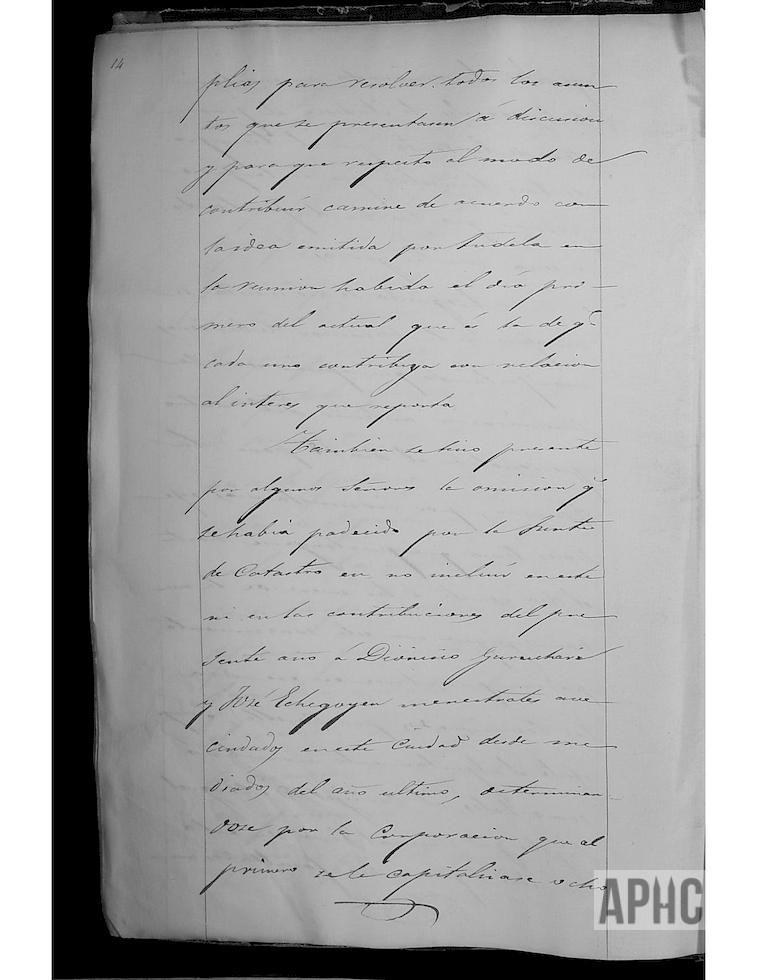 14
plias para resolver todos los asun
tos que se presentasen á discusion
y para que respecto al modo de
contribuir camine de acuerdo con
la idea emitida por Tudela en
la reunion habida el dia pri-
mero del actual que és la de q.e
cada uno contribuya con relacion
al interes que reporta
Tambien se tuvo presente
por algunos Señores la omision q.e
se había padecido por la Junta
de Catastro en no incluir en este
ni en las contribuciones del pre
sente año á Dionisio
y José Echegoyen menestrales ave
cindados en esta Ciudad desde me
diados del año ultimo, determinan-
dose por la Corporacion que al
primero se le capitaliase ocho
APHC